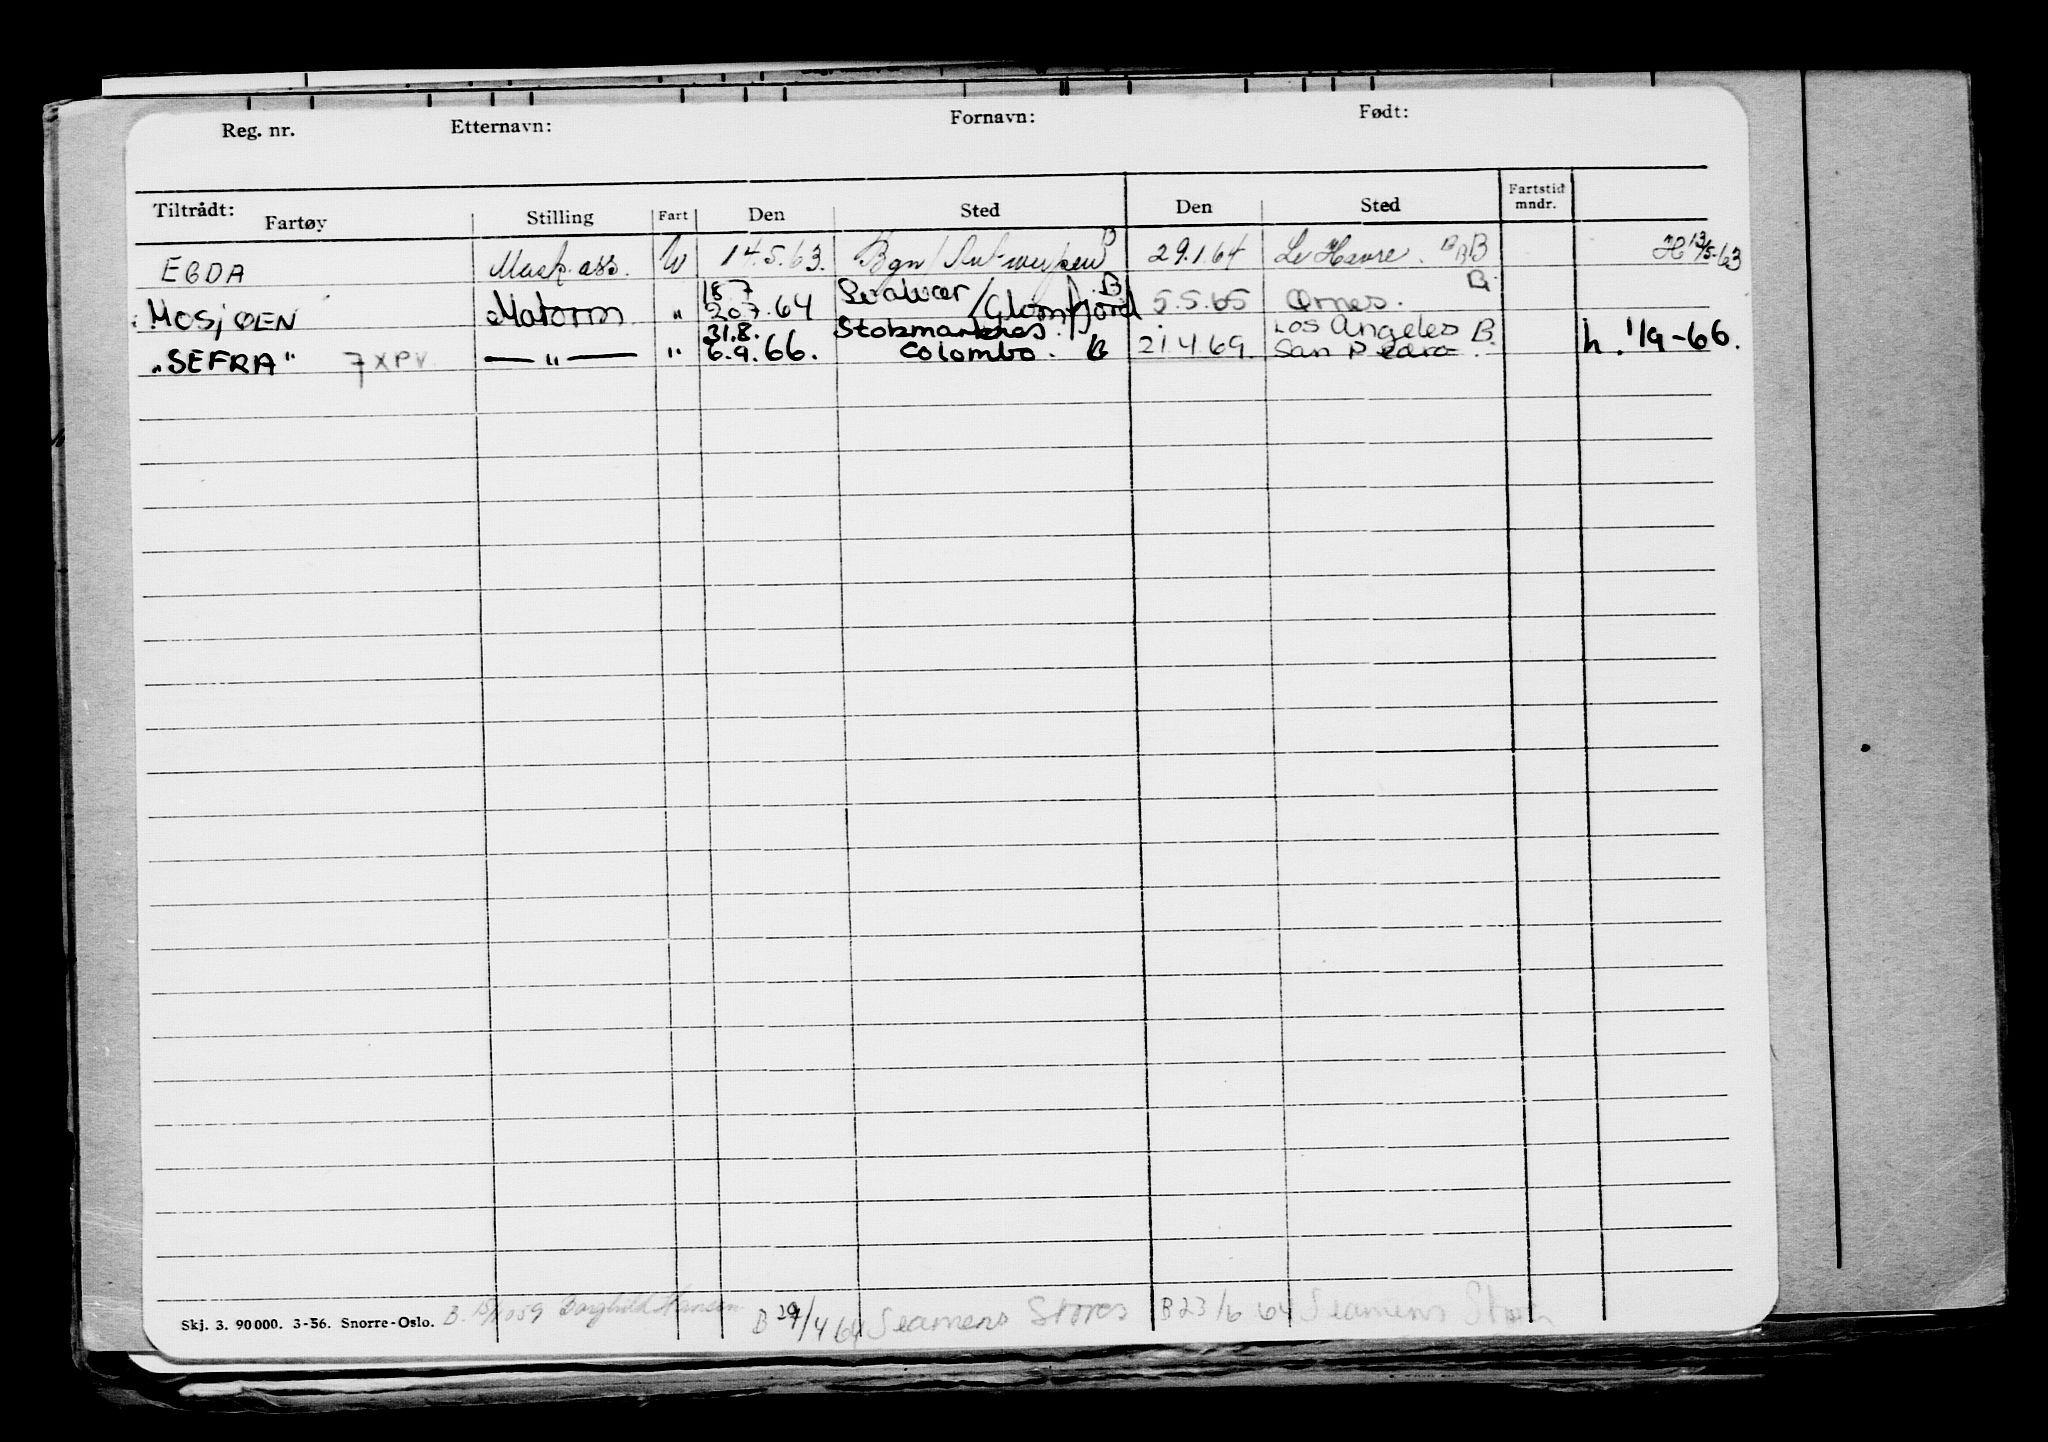 Reg. nr. Etternavn: Fornavn: Født:
Tiltrådt: Fartøy Stilling Fart Den Sted Den Sted Fartstid mndr.
EGDA Mask.ass. W 14.5.63. Bgn/Antwerpen B 29.1.64 Le Havre. B B B H 13/5-63
18 7 Svolvær B. B.
MOSJØEN Motorm " 20.7.64 /Glomfjord 5.5.65 Ørnes.
31.8. Stokmarknes. Los Angeles B
"SEFRA" 7 X PV. — " — " 6.9.66. Colombo. B 21.4.69. San Pedro. h. 1/9-66.
Skj. 3. 90000. 3-56. Snorre-Oslo. B. Borghild Hansen B 29/4 64 Seamens Stores B 23/6 64 Seamens